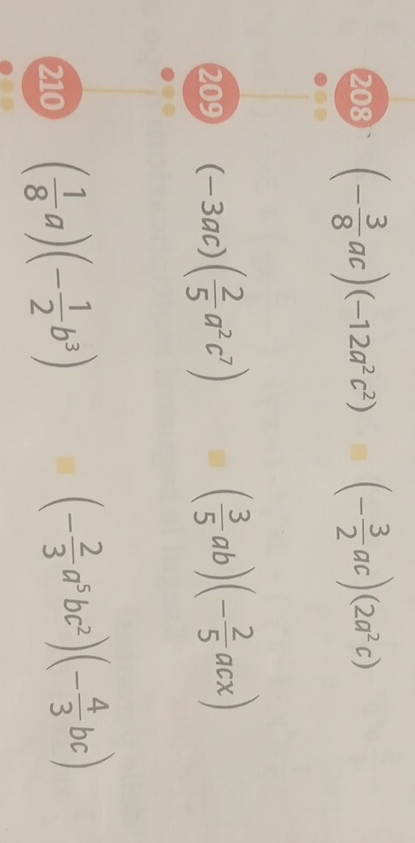 208 (-3/8 ac)(-12a²c²) (-3/2 ac)(2a²c)
209 (-3ac)(2/5 a²c⁷) (3/5 ab)(-2/5 acx)
210 (1/8 a)(-1/2 b³) (-2/3 a⁵bc²)(-4/3 bc)